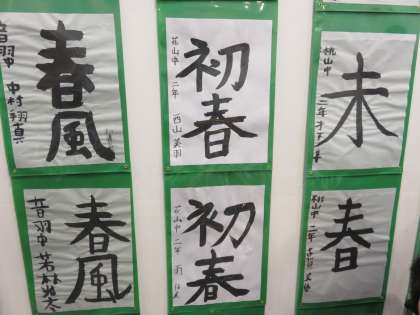 春風
音羽中 中村翔真
初春
花山中 二年 西山 美羽
未
桃山中 二年
春風
音羽中 若林
初春
花山中 二年
春
桃山中 二年